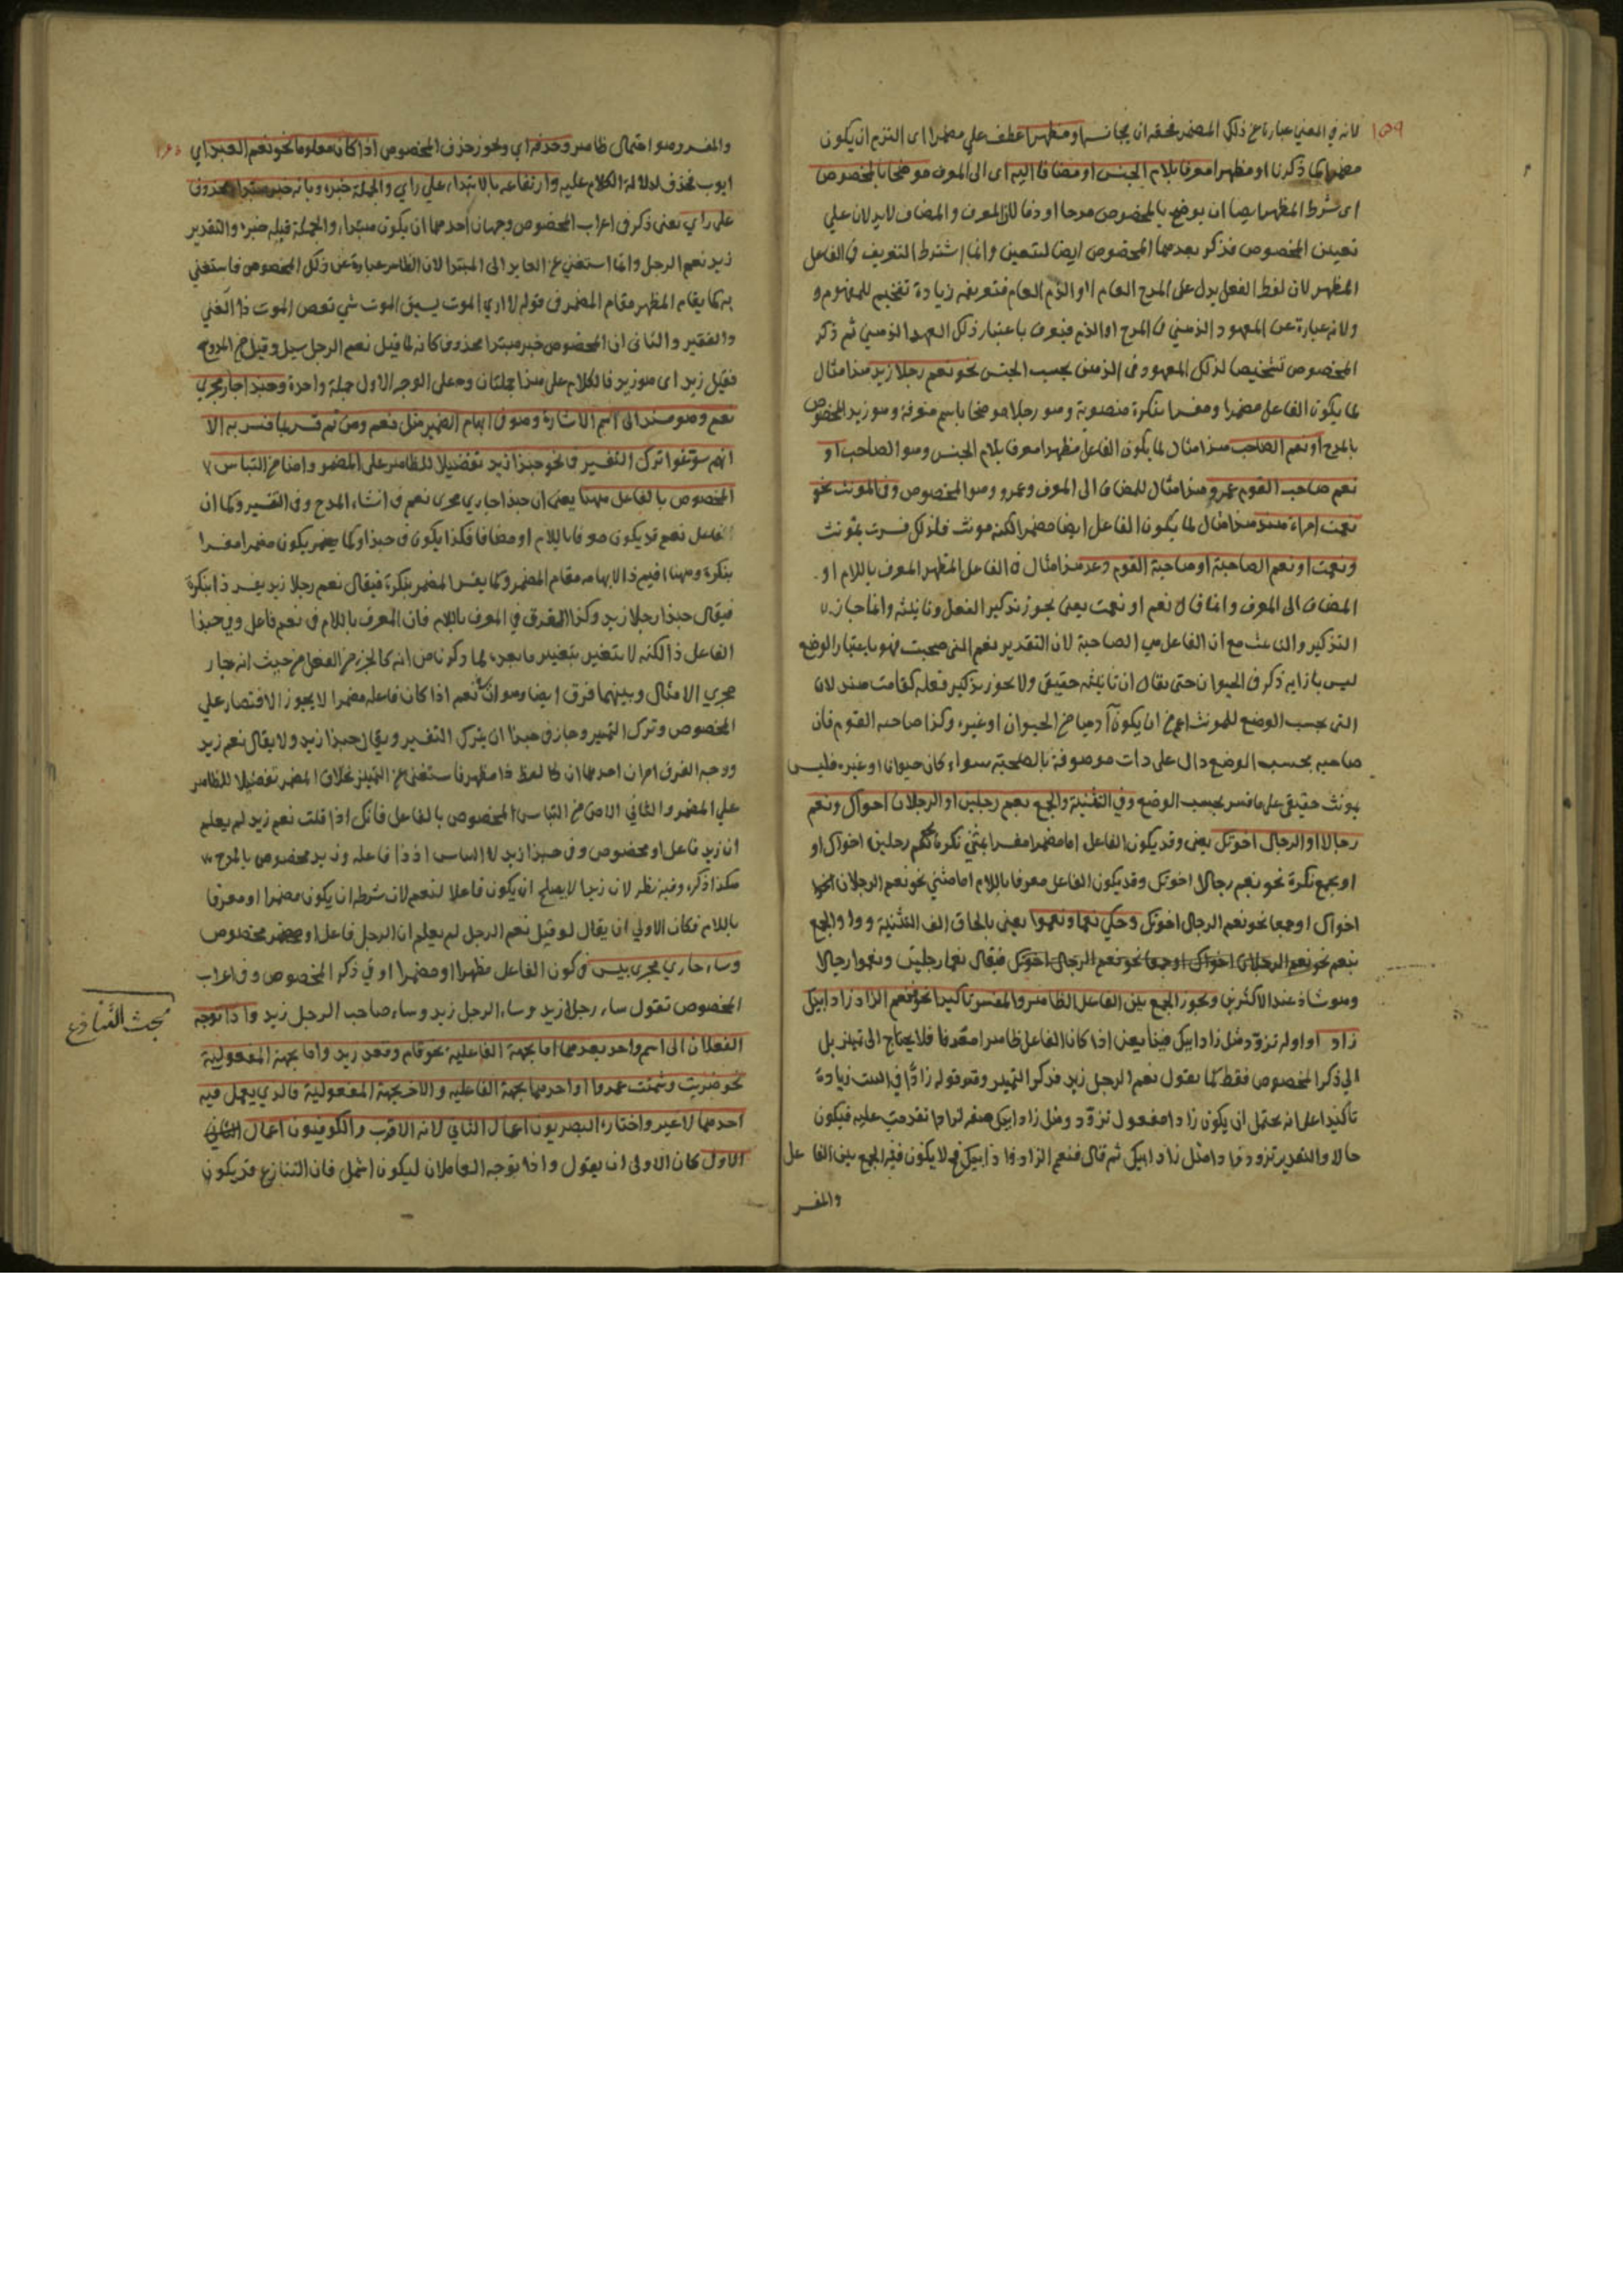 ١٥٩
لانه في المعني عبارة عن ذلك المضمر فحقه ان يجانسه او مظهرا عطف علي مضمرا اى التزم ان يكون
مضمرا كما ذكرنا او مظهرا معرفا بلام الجنس او مضافا اليه اى الى المعرف موضحا بالمخصوص
اى شرط المظهر ايضا ان يوضح بالمخصوص مدحا او ذما لان المعرف والمضاف لا يدلان علي
تعيين المخصوص فذكر بعدهما المخصوص ايضا لتعين وانما اشترط التعريف في الفاعل
المظهر لان لفظ الفعل يدل على المدح العام او الذم العام فتعريفه زيادة تفخيم للمفهوم و
ولانه عبارة عن المعهود الذهني في المدح او الذم فيعرف باعتبار ذلك العهد الذهني ثم ذكر
المخصوص تشخيصا لذلك المعهود في الذهن بحسب الجنس نحو نعم رجلا زيد هذا مثال
لما يكون الفاعل مضمرا ومفسرا بنكرة منصوبة وهو رجلا موضحا باسم معرفة وهو زيد المخصوص
بالمدح او نعم الصاحب هذا مثال لما يكون الفاعل مظهرا معرفا بلام الجنس وهو الصاحب او
نعم صاحب القوم عمرو هذا مثال للمضاف الى المعرف وعمرو وهو المخصوص وفي المونث نحو
نعمت امراة هند هذا مثال لما يكون الفاعل ايضا مضمرا لكنه مونث فلذلك فسرت بمونث
ونعمت او نعم الصاحبة او صاحبة القوم دعد هذا مثال ان الفاعل المظهر المعرف باللام او
المضاف الى المعرف وانما قال نعم او نعمت يعني يجوز تذكير الفعل وتانيثه وانما جاز
التذكير والتانيث مع ان الفاعل هي الصاحبة لان التقدير نعم التى صحبت فهو باعتبار الوضع
ليس بازايه ذكر في الحيوان حتى يقال ان تانيثه حقيقي ولا يجوز تذكير فعله كقامت هند لان
التى بحسب الوضع للمونث اعم من ان يكون آدميا من الحيوان او غيره وكذا صاحبه القوم فان
صاحبه بحسب الوضع دال على ذات موصوفة بالصحبة سواء كان حيوانا او غيره فليس
بمونث حقيقي على ما فسر بحسب الوضع وفي التثنية والجمع نعم رجلين او الرجلان اخواك ونعم
رجالا او الرجال اخوتك يعني وقد يكون الفاعل اما مضمرا مفسرا بمثني نكرة كنعم رجلين اخواك او
او بجمع نكرة نحو نعم رجالا اخوتك وقد يكون الفاعل معرفا باللام اما مثني نحو نعم الرجلان
اخواك او جمعا نحو نعم الرجال اخوتك وحكي نعما ونعموا يعني بالحاق الف التثنية وواو الجمع
بنعم نحو نعم الرجلان اخواك او جمعا نحو نعم الرجال اخوتك فيقال نعما رجلين ونعموا رجالا
وهو شاذ عند الاكثرين ويجوز الجمع بين الفاعل الظاهر والمفسر تاكيدا نحو فنعم الزاد زاد ابيك
زاد اوله تزود مثل زاد ابيك فينا يعني اذا كان الفاعل ظاهرا معرفا فلا يحتاج الى تميز بل
الي ذكر المخصوص فقط كما يقول نعم الرجل زيد فذكر التميز وهو قوله زادا في البيت زيادة
تاكيدا على انه يحتمل ان يكون زادا مفعول تزود ومثل زاد ابيك صفة لزادا تقدمت عليه فيكون
حالا والتقدير تزود زادا مثل زاد ابيك ثم قال فنعم الزاد زاد ابيك فح لا يكون فيه الجمع بين الفاعل
والمفسر
والمفسر وهو احتمال ظاهر وحذفه اي ويجوز حذف المخصوص اذا كان معلوما نحو نعم العبد اي
ايوب فحذف لدلالة الكلام عليه وارتفاعه بالابتداء علي راي والجملة خبره وبانه خبر مبتدا محذوف
على راي يعني ذكر في اعراب المخصوص وجهان احدهما ان يكون مبتدا، والجملة قبله خبره والتقدير
زيد نعم الرجل وانما استغني عن العايد الى المبتدا لان الظاهر عبارة عن ذلك المخصوص فاستغني
به كما يقام المظهر مقام المضمر في قوله لا ارى الموت يسبق الموت شي نغص الموت ذا الغني
والفقير والثاني ان المخصوص خبر مبتدا محذوف كانه لما قيل نعم الرجل سيل وقيل من الممدوح
فقيل زيد اى هو زيد فالكلام على هذا جملتان وعلى الوجه الاول جملة واحدة وحبذا جار مجري
نعم وهو مسند الى اسم الاشارة وهو في ابهام الضمير مثل نعم ومن ثم فسر بما فسر به الا
انهم سوغوا ترك التفسير في نحو حبذا زيد تفضيلا للظاهر على المضمر وامنا من التباس
المخصوص بالفاعل ههنا يعني ان حبذا جاري مجرى نعم في انشاء المدح وفي التفسير وكما ان
الفاعل نعم قد يكون معرفا باللام او مضافا فكذا يكون في حبذا وكما يضمر يكون مضمرا مفسرا
بنكرة وههنا اقيم ذا لابهامه مقام المضمر وكما يفسر المضمر بنكرة فيقال نعم رجلا زيد يفسر ذا بنكرة
فيقال حبذا رجلا زيد وكذا الفرق في المعرف باللام فان المعرف باللام في نعم فاعل وفي حبذا
الفاعل ذا لكنه لا يتغير بتغير ما بعده لما ذكرنا من انه كالجزء من الفعل من حيث انه جار
مجري الامثال وبينهما فرق ايضا وهو ان نعم اذا كان فاعله مضمرا لا يجوز الاقتصار علي
المخصوص وترك التميز وجاز في حبذا ان يترك التفسير ويقال حبذا زيد ولا يقال نعم زيد
ووجه الفرق امران احدهما ان لفظ ذا مظهر فاستغني عن التميز بخلاف المضمر تفضيلا للظاهر
علي المضمر والثاني الامن من التباس المخصوص بالفاعل فانك اذا قلت نعم زيد لم يعلم
ان زيد فاعل او مخصوص وفي حبذا زيد لا التباس اذ ذا فاعله وزيد مخصوص بالمدح
هكذا ذكره وفيه نظر لان زيدا لا يصلح ان يكون فاعلا لنعم لان شرطه ان يكون مضمرا او معرفا
باللام فكان الاولي ان يقال لو قيل نعم الرجل لم يعلم ان الرجل فاعل او مخصوص
وساء جاري مجرى بيس في كون الفاعل مظهرا او مضمرا او في ذكر المخصوص وفي اعراب
المخصوص تقول ساء رجلا زيد وساء الرجل زيد وساء صاحب الرجل زيد واذا توجه
الفعلان الى اسم واحد بعدهما اما بجهة الفاعلية نحو قام وقعد زيد واما بجهة المفعولية
نحو ضربت وشتمت عمروا او احدهما بجهة الفاعليه والاخر بجهة المفعولية فالذي يعمل فيه
احدهما لا غير واختار البصريون اعمال الثاني لانه الاقرب والكوفيون اعمال
الاول كان الاولى ان يقول واذا توجه العاملان ليكون اشمل فان التنازع قد يكون
مبحث التنازع